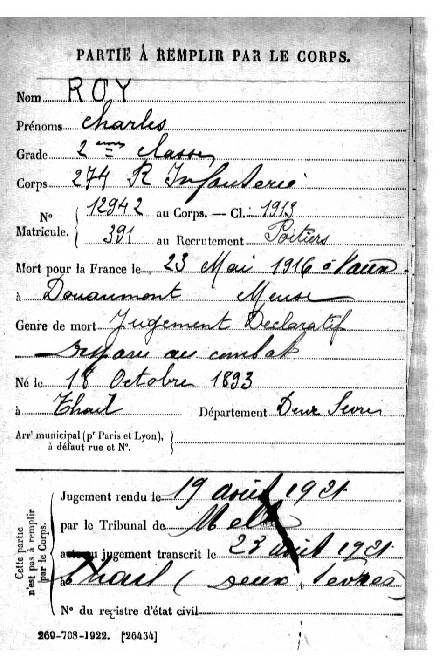 PARTIE À REMPLIR PAR LE CORPS.
Nom ROY
Prénoms Charles
Grade 2ème classe
Corps 274 R Infanterie
N° Matricule. { 12942 au Corps. — Cl. 1913
391 au Recrutement Poitiers
Mort pour la France le 23 Mai 1916 à Vaux
à Douaumont Meuse
Genre de mort Jugement Déclaratif
disparu au combat
Né le 18 Octobre 1893
à Thail Département Deux Sèvres
Arr' municipal (pr Paris et Lyon), à défaut rue et N°.
Cette partie n'est pas à remplir par le Corps.
Jugement rendu le 19 août 1921
par le Tribunal de Melle
jugement transcrit le 23 août 1921
à Thail (Deux Sèvres)
N° du registre d'état civil
269-708-1922. [26434]